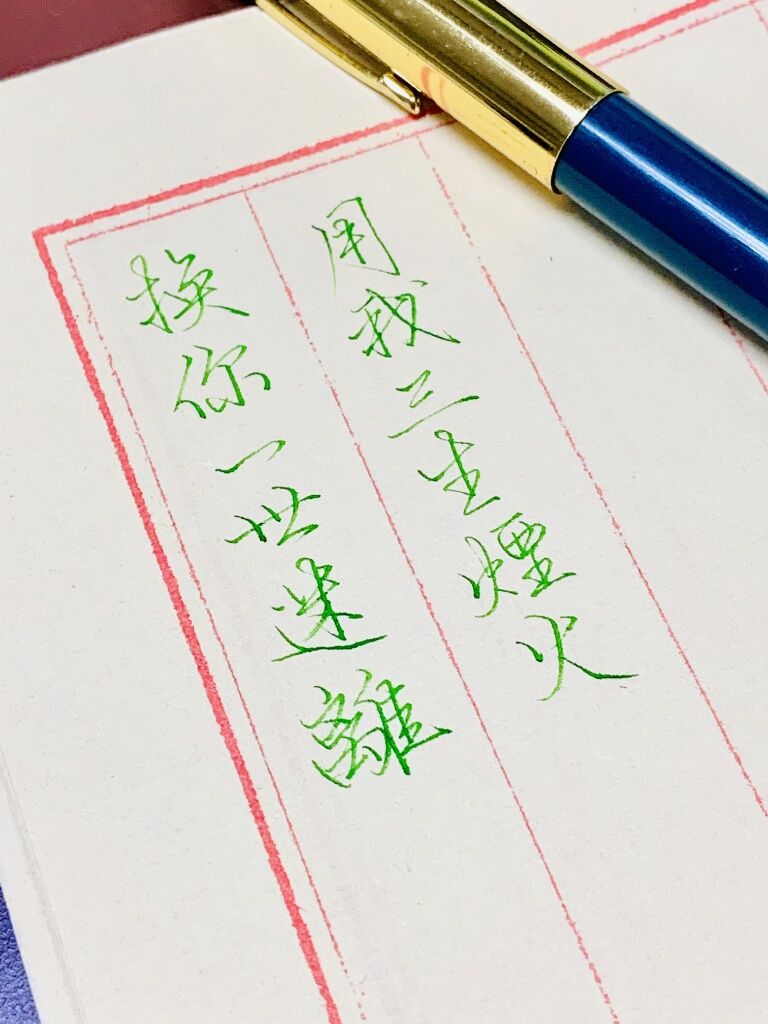 用我三生煙火
換你一世迷離